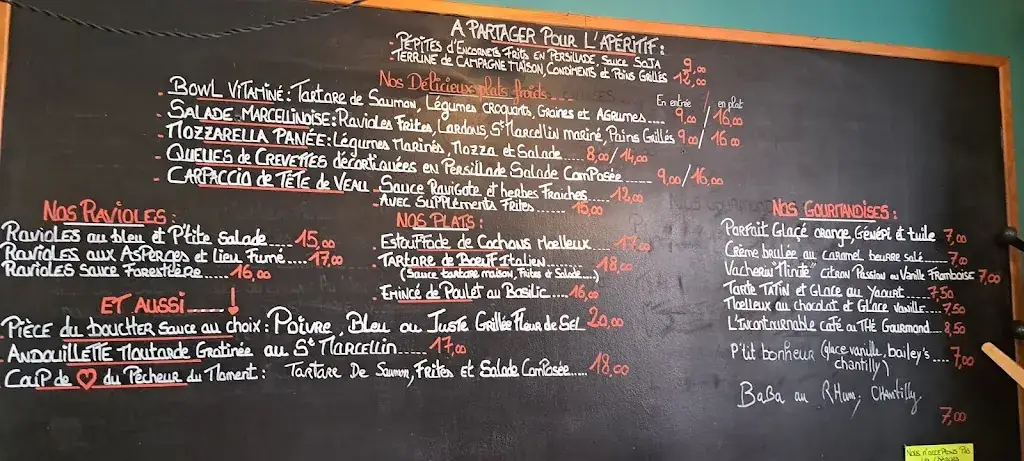 A PARTAGER POUR L'APÉRITIF :
- PÉPITES d'ENCORNETS FRITS EN PERSILLADE, SAUCE SOJA 9,00
- TERRINE DE CAMPAGNE MAISON, CONDIMENTS et PAINS GRILLÉS 12,00
Nos Délicieux plats froids
En entrée / en plat
- BOWL VITAMINÉ : Tartare de Saumon, Légumes croquants, Graines et Agrumes.... 9,00 / 16,00
- SALADE MARCELLINOISE : Ravioles Frites, Lardons, St Marcellin mariné, Pains Grillés 9,00 / 16,00
- MOZZARELLA PANÉE : Légumes Marinés, Mozza et Salade..... 8,00 / 14,00
- QUEUES de CREVETTES décortiquées en Persillade Salade Composée..... 9,00 / 16,00
- CARPACCIO de TÊTE de VEAU - Sauce Ravigote et herbes Fraîches..... 12,00
- AVEC SUPPLÉMENTS FRITES..... 15,00
NOS RAVIOLES :
RAVIOLES au bleu et P'tite salade..... 15,00
RAVIOLES aux ASPERGES et LIEU Fumé..... 17,00
RAVIOLES SAUCE FORESTIÈRE..... 16,00
NOS PLATS :
- ESTOUFFADE de Cochons Moelleux.... 17,00
- TARTARE de BOEUF ITALIEN..... 18,00
(Sauce tartare maison, Frites et Salade....)
- EMINCÉ de POULET au BASILIC.... 16,00
ET AUSSI.....
- PIÈCE du boucher SAUCE au choix : POIVRE, BLEU ou JUSTE GRILLÉE FLEUR de SEL 20,00
- ANDOUILLETTE Moutarde Gratinée au St MARCELLIN..... 17,00
- COUP de ♥ du PÊCHEUR du Moment : TARTARE DE SAUMON, FRITES et SALADE COMPOSÉE..... 18,00
NOS GOURMANDISES :
PARFAIT GLACÉ orange, GÉNÉPI et tuile 7,00
CRÈME brulée au CARAMEL beurre salé 7,00
VACHERIN "Minute" CITRON PASSION ou VANILLE FRAMBOISE 7,00
TARTE TATIN et GLACE au YAOURT.... 7,50
MOELLEUX au chocolat et Glace vanille..... 7,50
L'INCONTOURNABLE CAFÉ ou THÉ GOURMAND.. 8,50
P'tit bonheur (glace vanille, bailey's.... chantilly) 7,00
BABA au RHUM, CHANTILLY 7,00
NOUS N'ACCEPTONS PAS
LES CHÈQUES